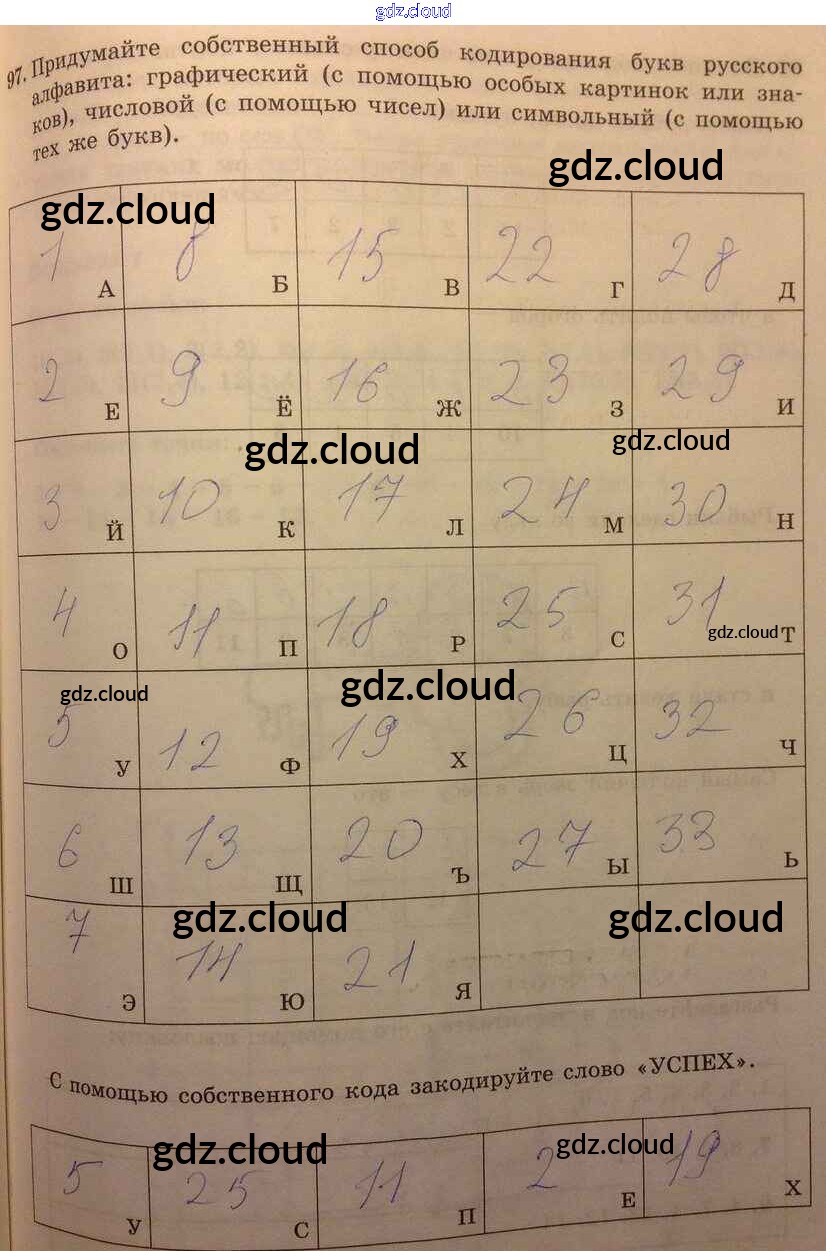 gdz.cloud
97. Придумайте собственный способ кодирования букв русского
алфавита: графический (с помощью особых картинок или зна-
ков), числовой (с помощью чисел) или символьный (с помощью
тех же букв).
gdz.cloud
gdz.cloud
1 А 8 Б 15 В 22 Г 28 Д
2 Е 9 Ё 16 Ж 23 З 29 И
gdz.cloud
gdz.cloud
3 Й 10 К 17 Л 24 М 30 Н
4 О 11 П 18 Р 25 С 31 Т
gdz.cloud
gdz.cloud
gdz.cloud
5 У 12 Ф 19 Х 26 Ц 32 Ч
6 Ш 13 Щ 20 Ъ 27 Ы 33 Ь
gdz.cloud
gdz.cloud
7 Э 14 Ю 21 Я
С помощью собственного кода закодируйте слово «УСПЕХ».
gdz.cloud
gdz.cloud
5 У 25 С 11 П 2 Е 19 Х